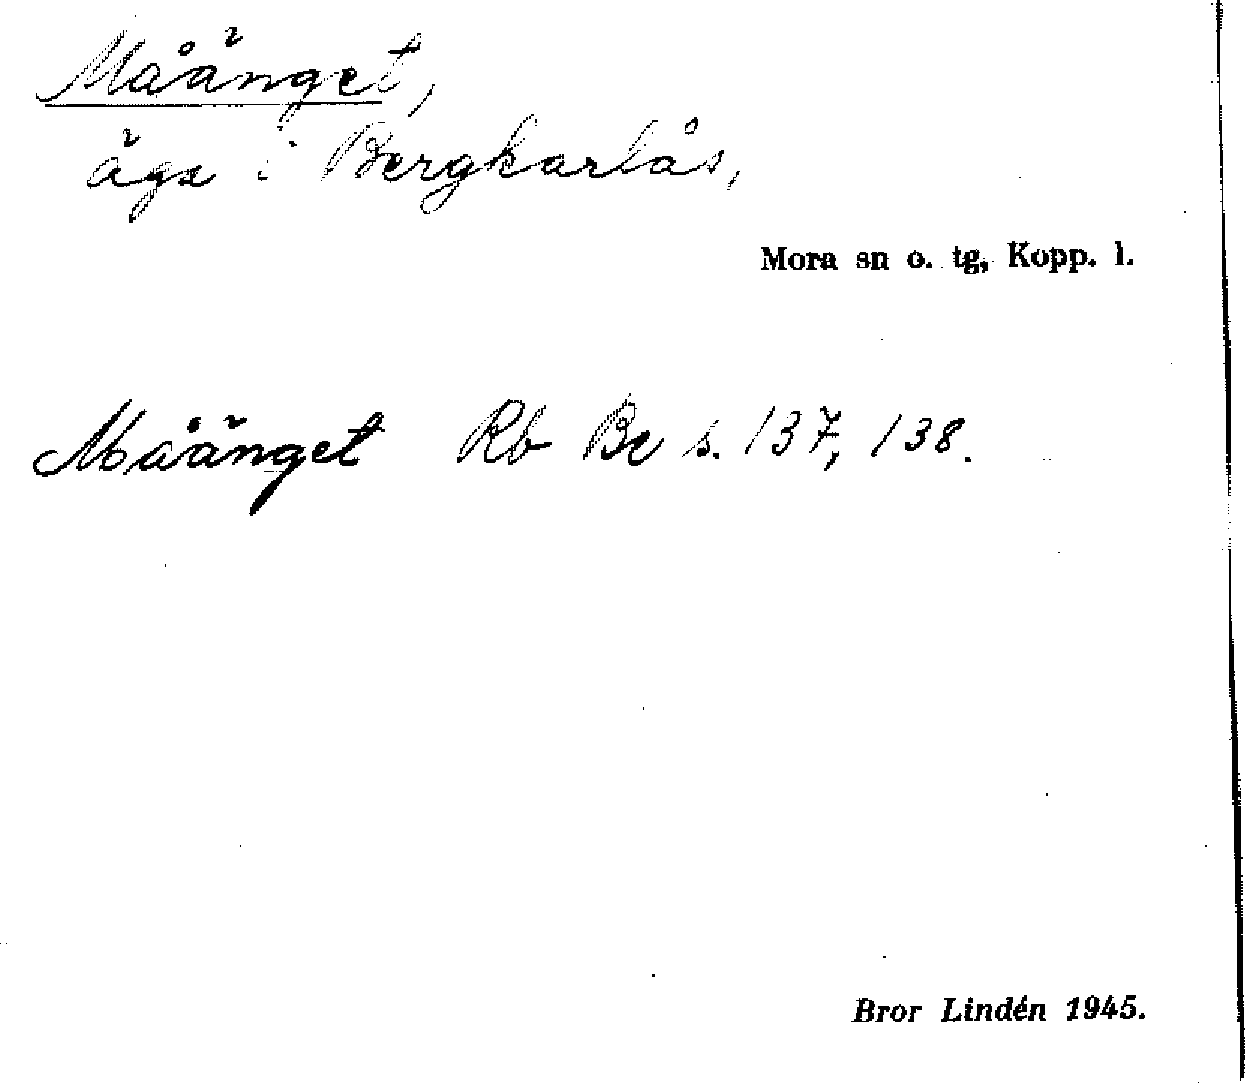 Måänget,
äga i Bergkarlås,
Mora sn o. tg, Kopp. l.
Måänget Rb Be s. 137, 138.
Bror Lindén 1945.